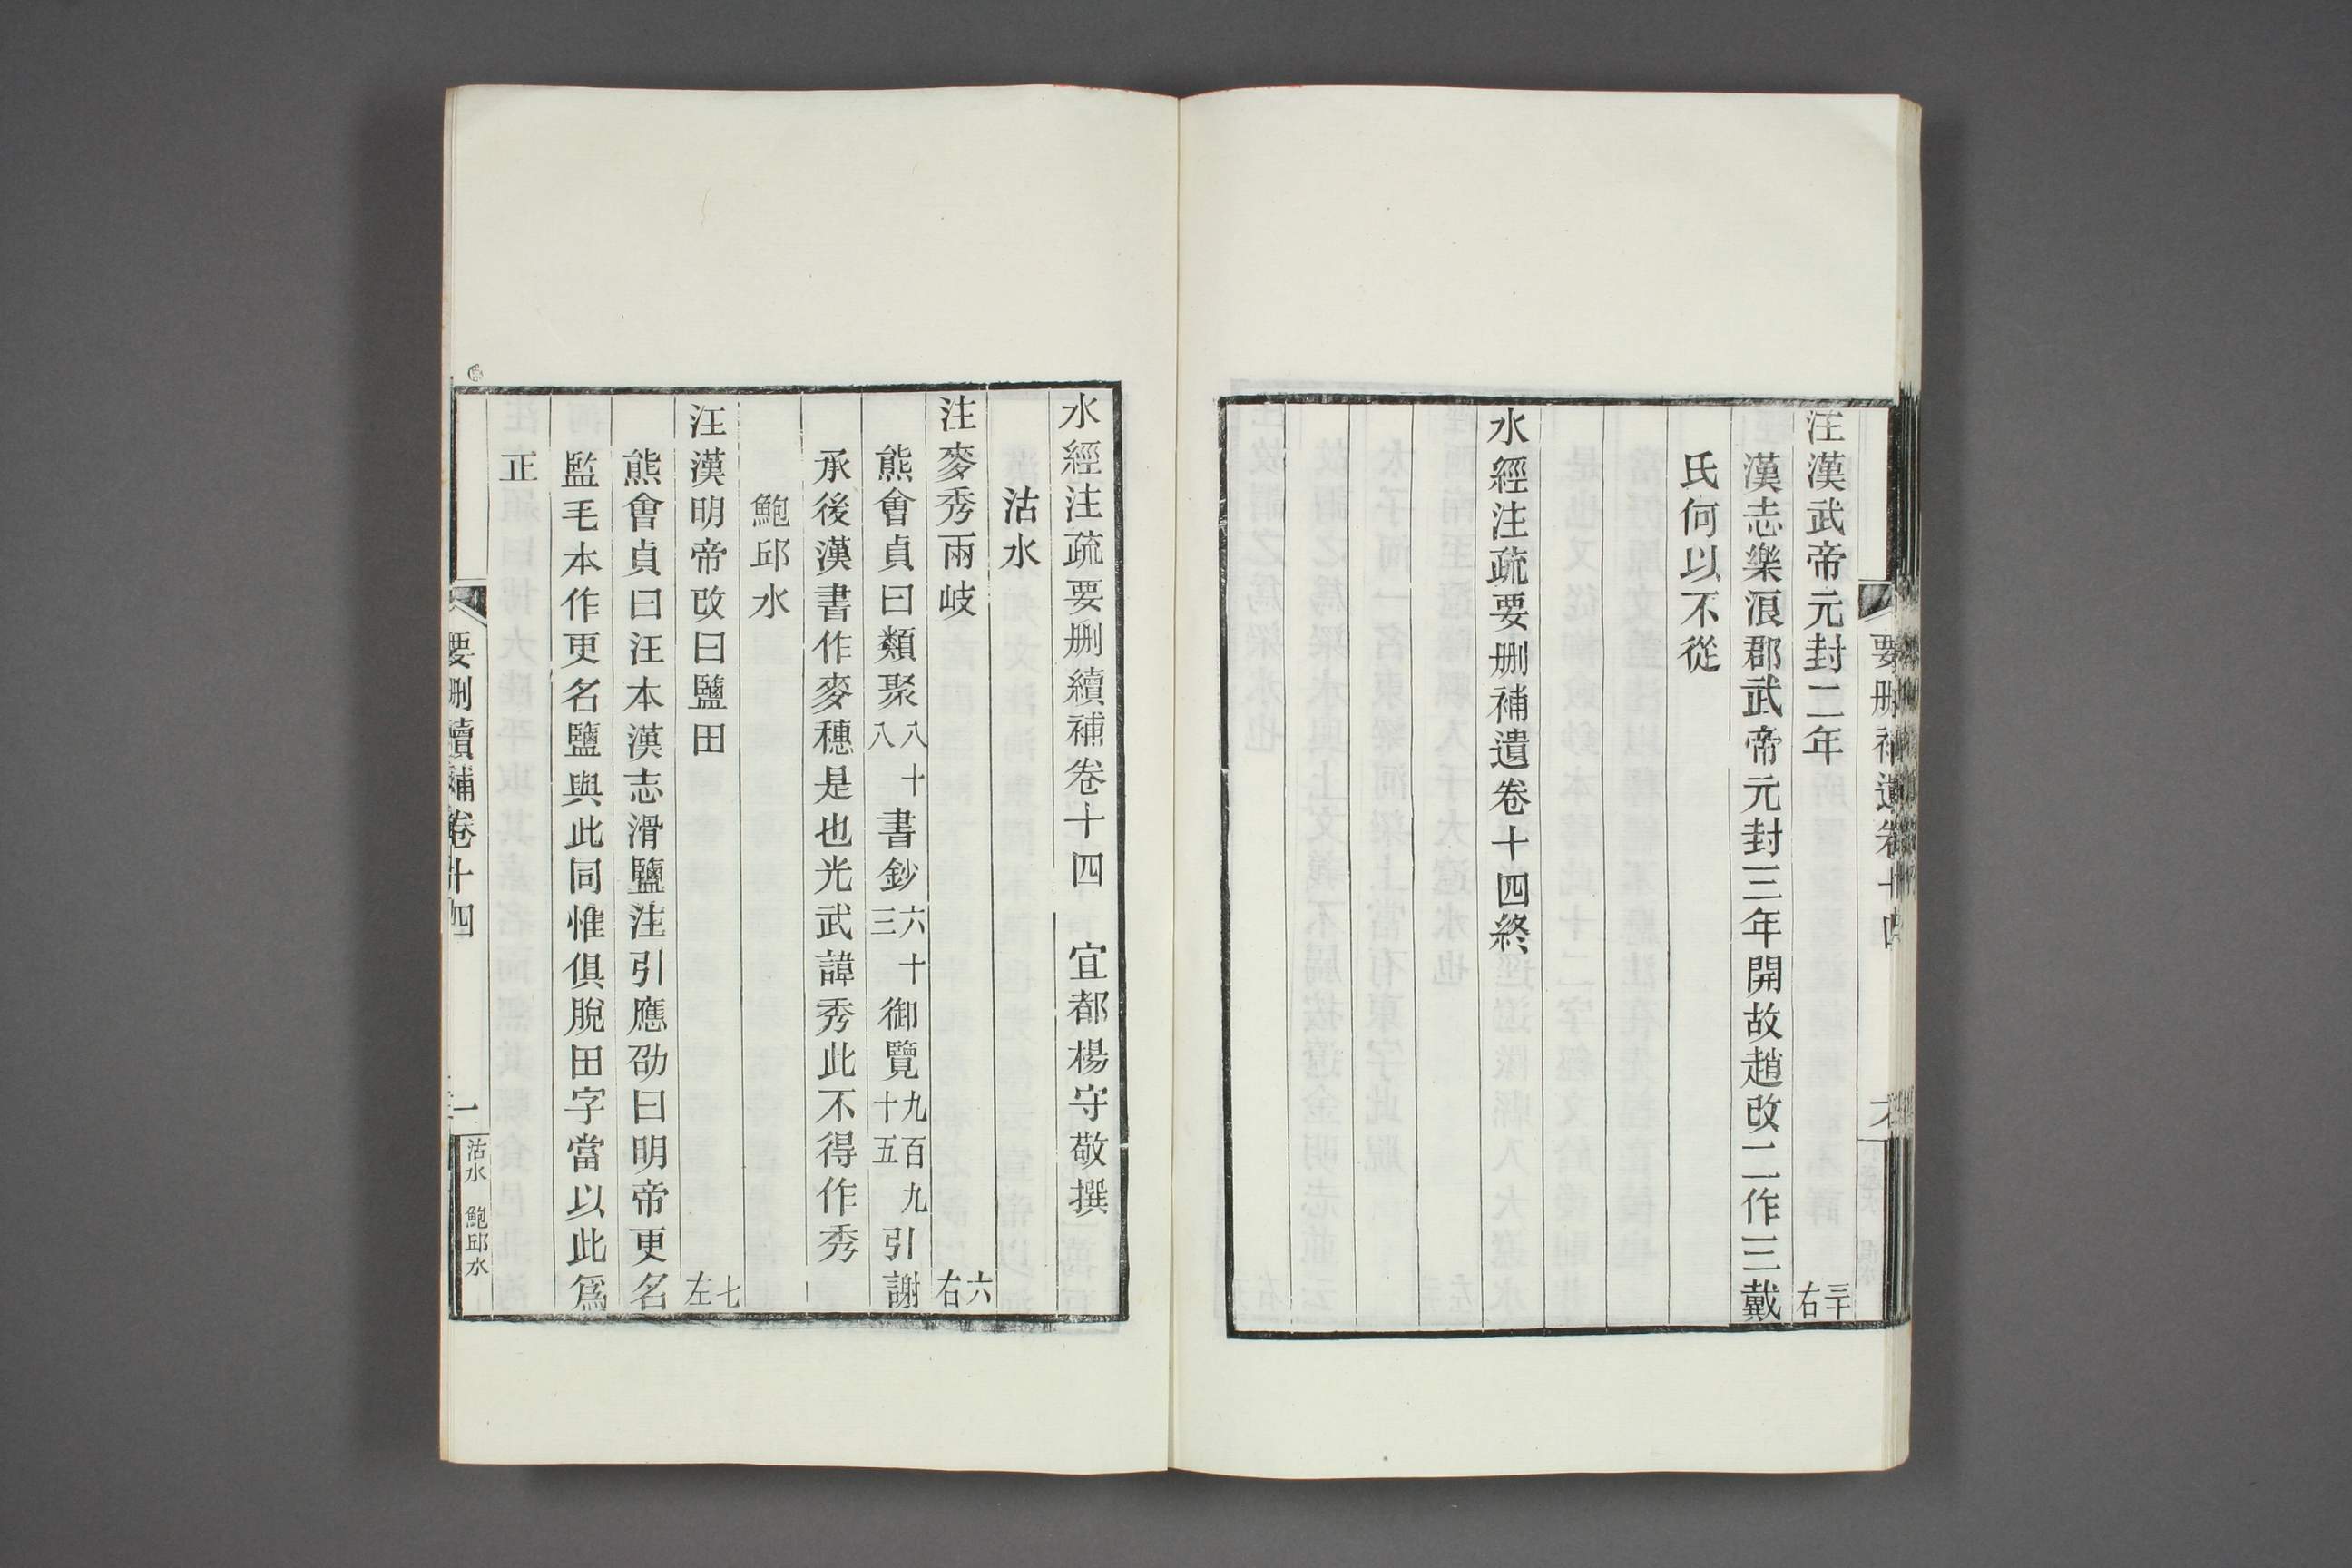 注漢武帝元封二年 三十右
漢志樂浪郡武帝元封三年開故趙改二作三戴
氏何以不從
水經注疏要删補遺卷十四終
水經注疏要删續補卷十四 宜都楊守敬撰
沽水
注麥秀兩岐 六右
熊會貞曰類聚八十八書鈔六十三御覽九百九十五引謝
承後漢書作麥穗是也光武諱秀此不得作秀
鮑邱水
注漢明帝改曰鹽田 七左
熊會貞曰汪本漢志滑鹽注引應劭曰明帝更名
監毛本作更名鹽與此同惟俱脫田字當以此爲
正
要删續補卷十四 一 沽水 鮑邱水